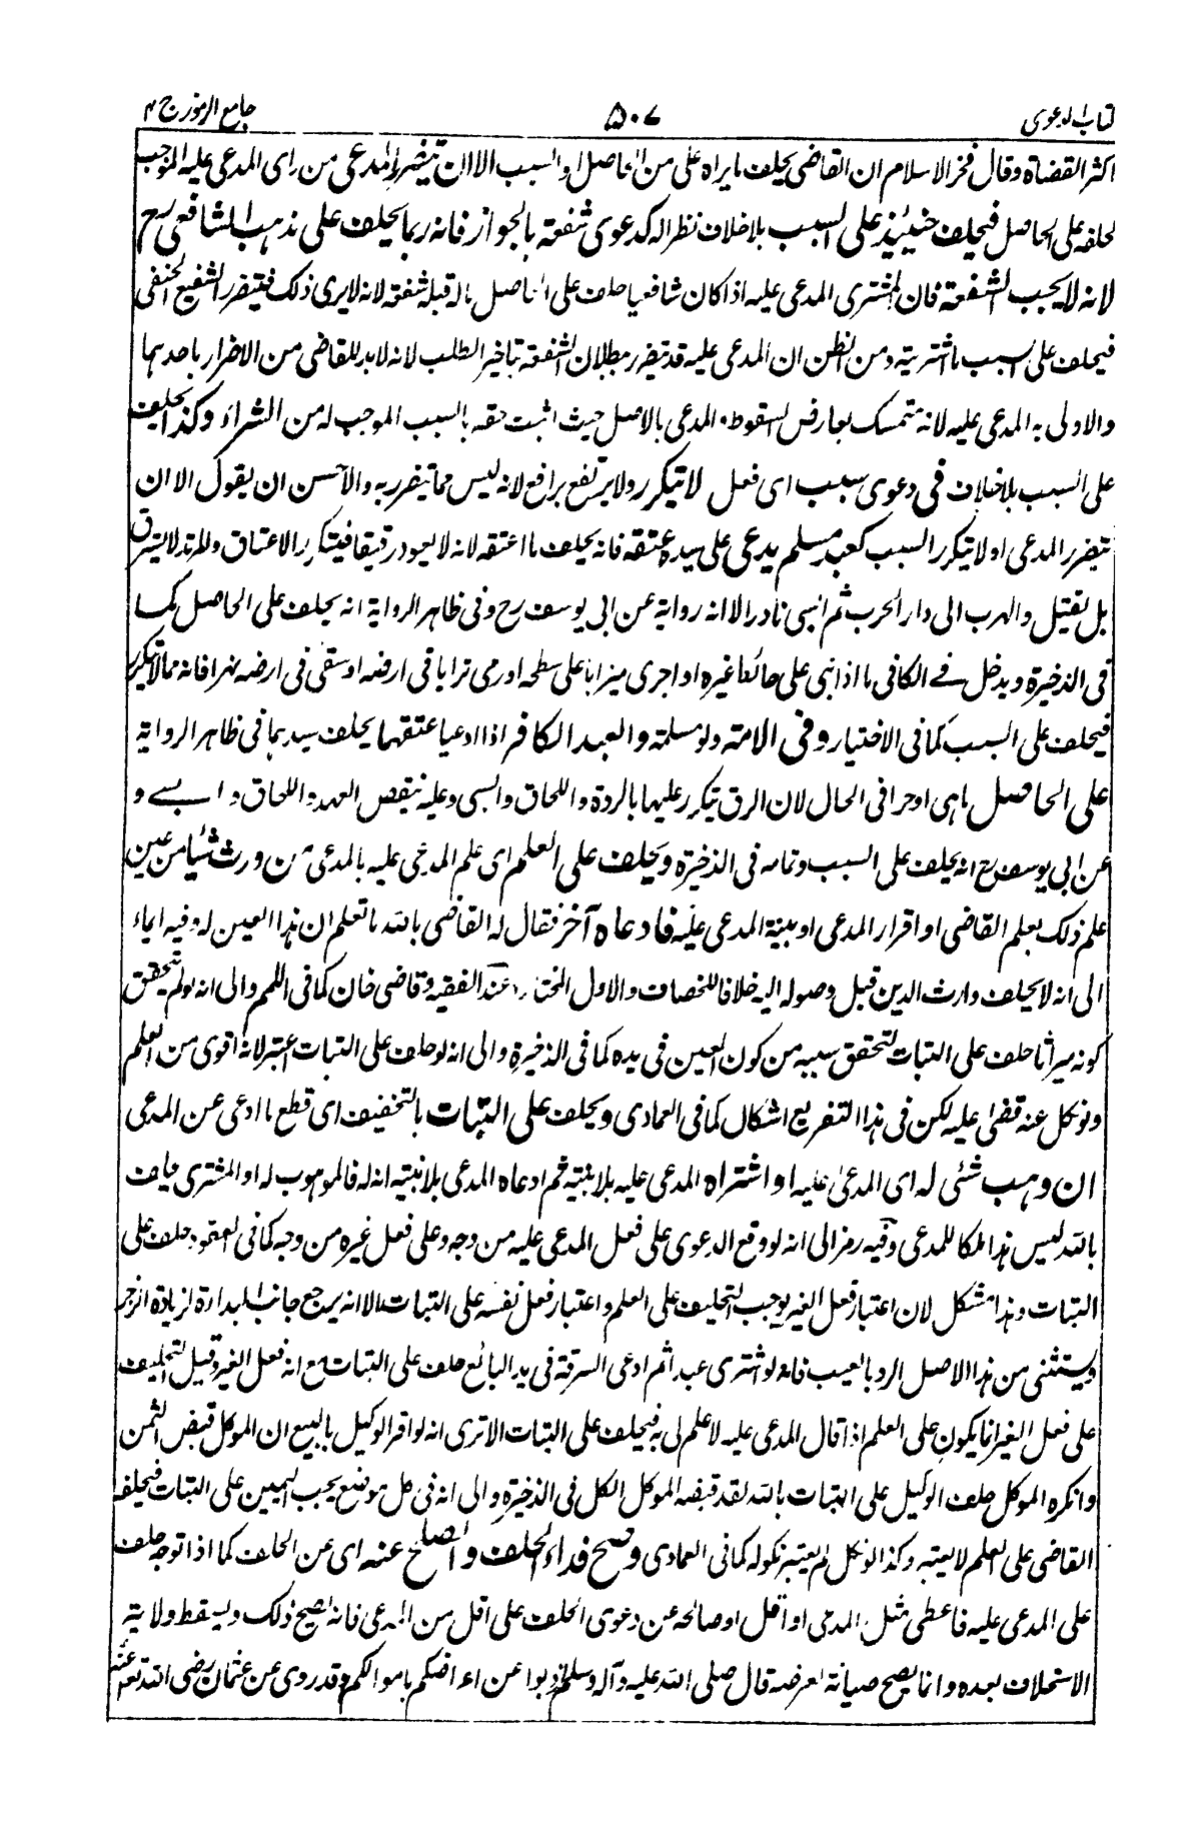 كتاب الدعوى ۵۰۷ جامع الرموز ج ۴
اكثر القضاة وقال فخر الاسلام ان القاضى يحلف ما يراه على من الحاصل او السبب الا ان يتضرر المدعى من راى المدعى عليه الموجب
لحلفه على الحاصل فيحلف حينئذ على السبب بلا خلاف نظرا له كدعوى شفعة بالجواز فانه ربما يحلف على مذهب الشافعى رح
لانه لا يجب الشفعة فان المشترى المدعى عليه اذا كان شافعيا حلف على الحاصل ماله قبله شفعة لانه لا يرى ذلك فيتضرر الشفيع الحنفى
فيحلف على السبب ما اشتريته ومن الظن ان المدعى عليه قد يتضرر ببطلان الشفعة بتاخير الطلب لانه لا بد للقاضى من الاضرار باحدهما
والاولى به المدعى عليه لانه متمسك بعارض السقوط والمدعى بالاصل حيث اثبت حقه بالسبب الموجب له من الشراء وكذا يحلف
على السبب بلا خلاف فى دعوى سبب اى فعل لا يتكرر ولا يرتفع برافع لانه ليس مما يتضرر به والاحسن ان يقول الا ان
يتضرر المدعى او لا يتكرر السبب كعبد مسلم يدعى على سيده عتقه فانه يحلف ما اعتقه لانه لا يعود رقيقا فيتكرر الاعتاق والمرتد لا يسترق
بل يقتل والهرب الى دار الحرب ثم السبى نادر الا انه رواية عن ابى يوسف رح وفى ظاهر الرواية انه يحلف على الحاصل كما
فى الذخيرة ويدخل فے الكافى ما اذا بنى على حائط غيره او اجرى ميزابا على سطحه او رمى ترابا فى ارضه او سقى فى ارضه نهرا فانه مما لا يتكرر
فيحلف على السبب كما فى الاختيار وفى الامة ولو مسلمة والعبد الكافر اذا ادعيا عتقهما يحلف سيدهما فى ظاهر الرواية
على الحاصل ما هى او حر فى الحال لان الرق يتكرر عليها بالردة واللحاق والسبى وعليه بنقص العهد واللحاق و السبے و
عن ابى يوسف رح انه يحلف على السبب وتمامه فى الذخيرة ويحلف على العلم اى علم المدعى عليه بالمدعى من ورث شيئا من عين
علم ذلك بعلم القاضى او اقرار المدعى او بينة المدعى عليه فادعاه آخر فقال له القاضى بالله ما تعلم ان هذا العين له وفيه ايماء
الى انه لا يحلف وارث الدين قبل وصوله اليه خلافا للخصاف والاول المختار عند الفقيه وقاضى خان كما فى اللمم والى انه لو لم يتحقق
كونه ميراثا حلف على البتات لتحقق سببه من كون العين فى يده كما فى الذخيرة والى انه لو حلف على البتات اعتبر لانه اقوى من العلم
ولو نكل عنه قضى عليه لكن فى هذا التفريع اشكال كما فى العمادى ويحلف على البتات بالتخفيف اى قطع ما ادعى عن المدعى
ان وهب شئى له اى المدعى عليه او اشتراه المدعى عليه بلا بينة ثم ادعاه المدعى بلا بينة انه له فالموهوب له او المشترى يحلف
بالله ليس هذا ملكا للمدعى وفيه رمز الى انه لو وقع الدعوى على فعل المدعى عليه من وجه وعلى فعل غيره من وجه كما فى العقود حلف على
البتات وهذا مشكل لان اعتبار فعل الغير يوجب التحليف على العلم واعتبار فعل نفسه على البتات الا انه يرجح جانب البداءة لزيادة الزجر
ويستثنى من هذا الاصل الرد بالعيب فانه لو اشترى عبدا ثم ادعى السرقة فى يد البائع حلف على البتات مع انه فعل الغير وقيل التحليف
على فعل الغير انما يكون على العلم اذا قال المدعى عليه لا علم لى به فيحلف على البتات الا ترى انه لو اقر الوكيل بالبيع ان الموكل قبض الثمن
وانكره الموكل حلف الوكيل على البتات بالله لقد قبضه الموكل الكل فى الذخيرة والى انه فى كل موضع يجب اليمين على البتات فيحلف
القاضى على العلم لا يعتبر وكذا لو نكل لم يعتبر نكوله كما فى العمادى وصح فداء الحلف والصلح عنه اى عن الحلف كما اذا توجه حلف
على المدعى عليه فاعطى مثل المدعى او اقل او صالحه عن دعوى الحلف على اقل من المدعى فانه يصح ذلك ويسقط ولاية
الاستحلاف بعده وانما يصح صيانة لعرضه قال صلى الله عليه وآله وسلم ذبوا عن اعراضكم باموالكم وقد روى عن عثمان رضى الله تعالى عنه